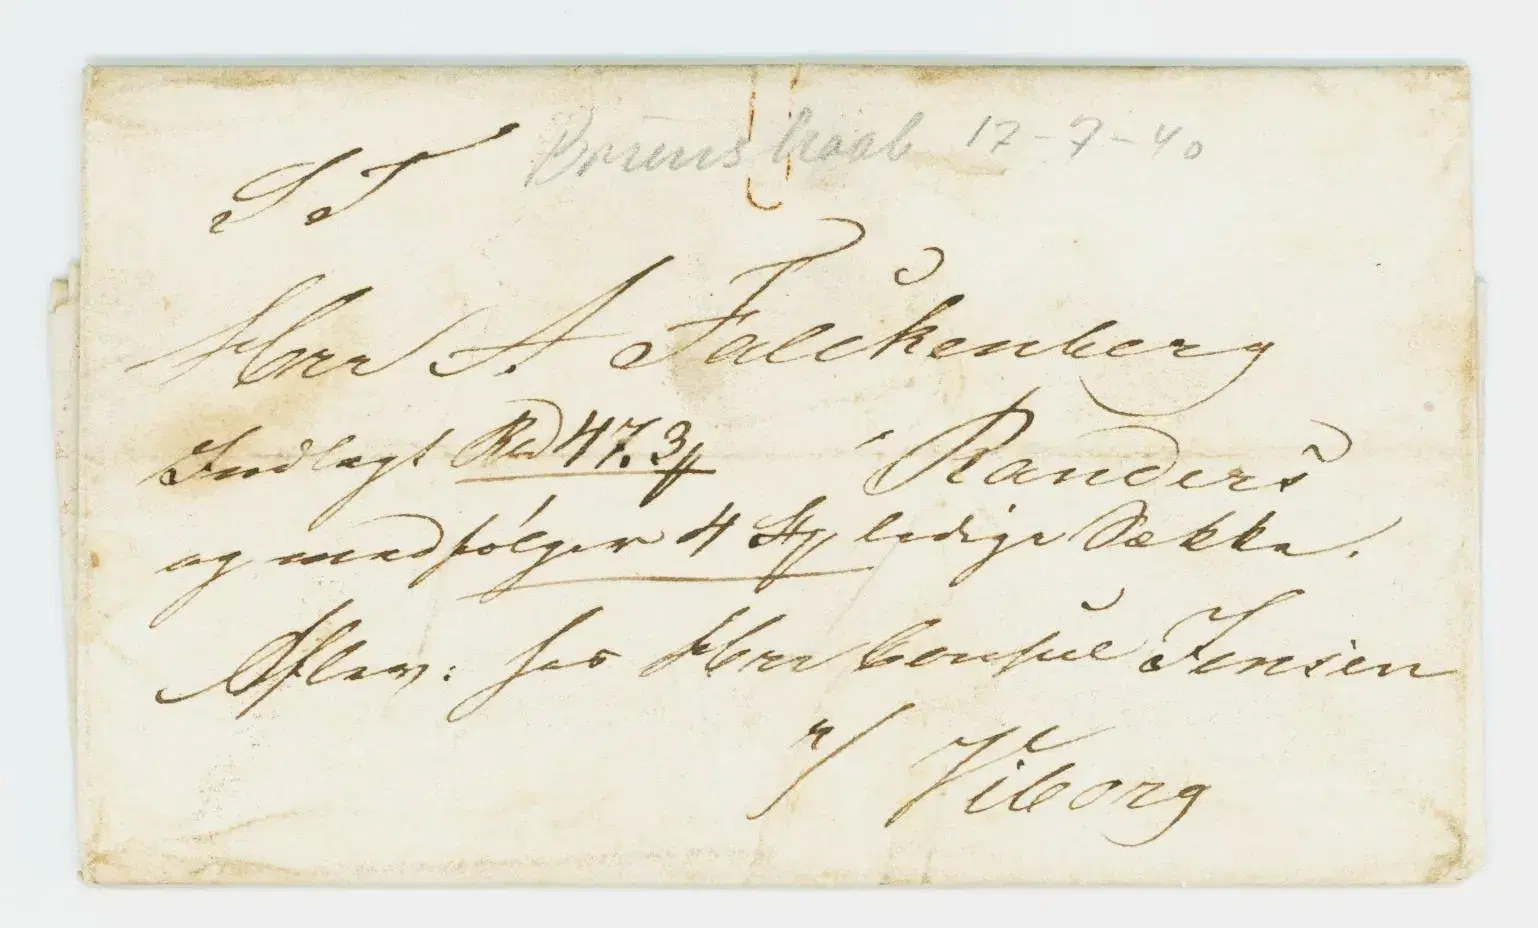 Bruunshaab 17-7-40
S T
Herr A. Falckenberg
Indlagt Rbd 47. 3 ß Randers
og medfølger 4 St ledige Sække.
Aflev: hos Herr Consul Jensen
i Viborg